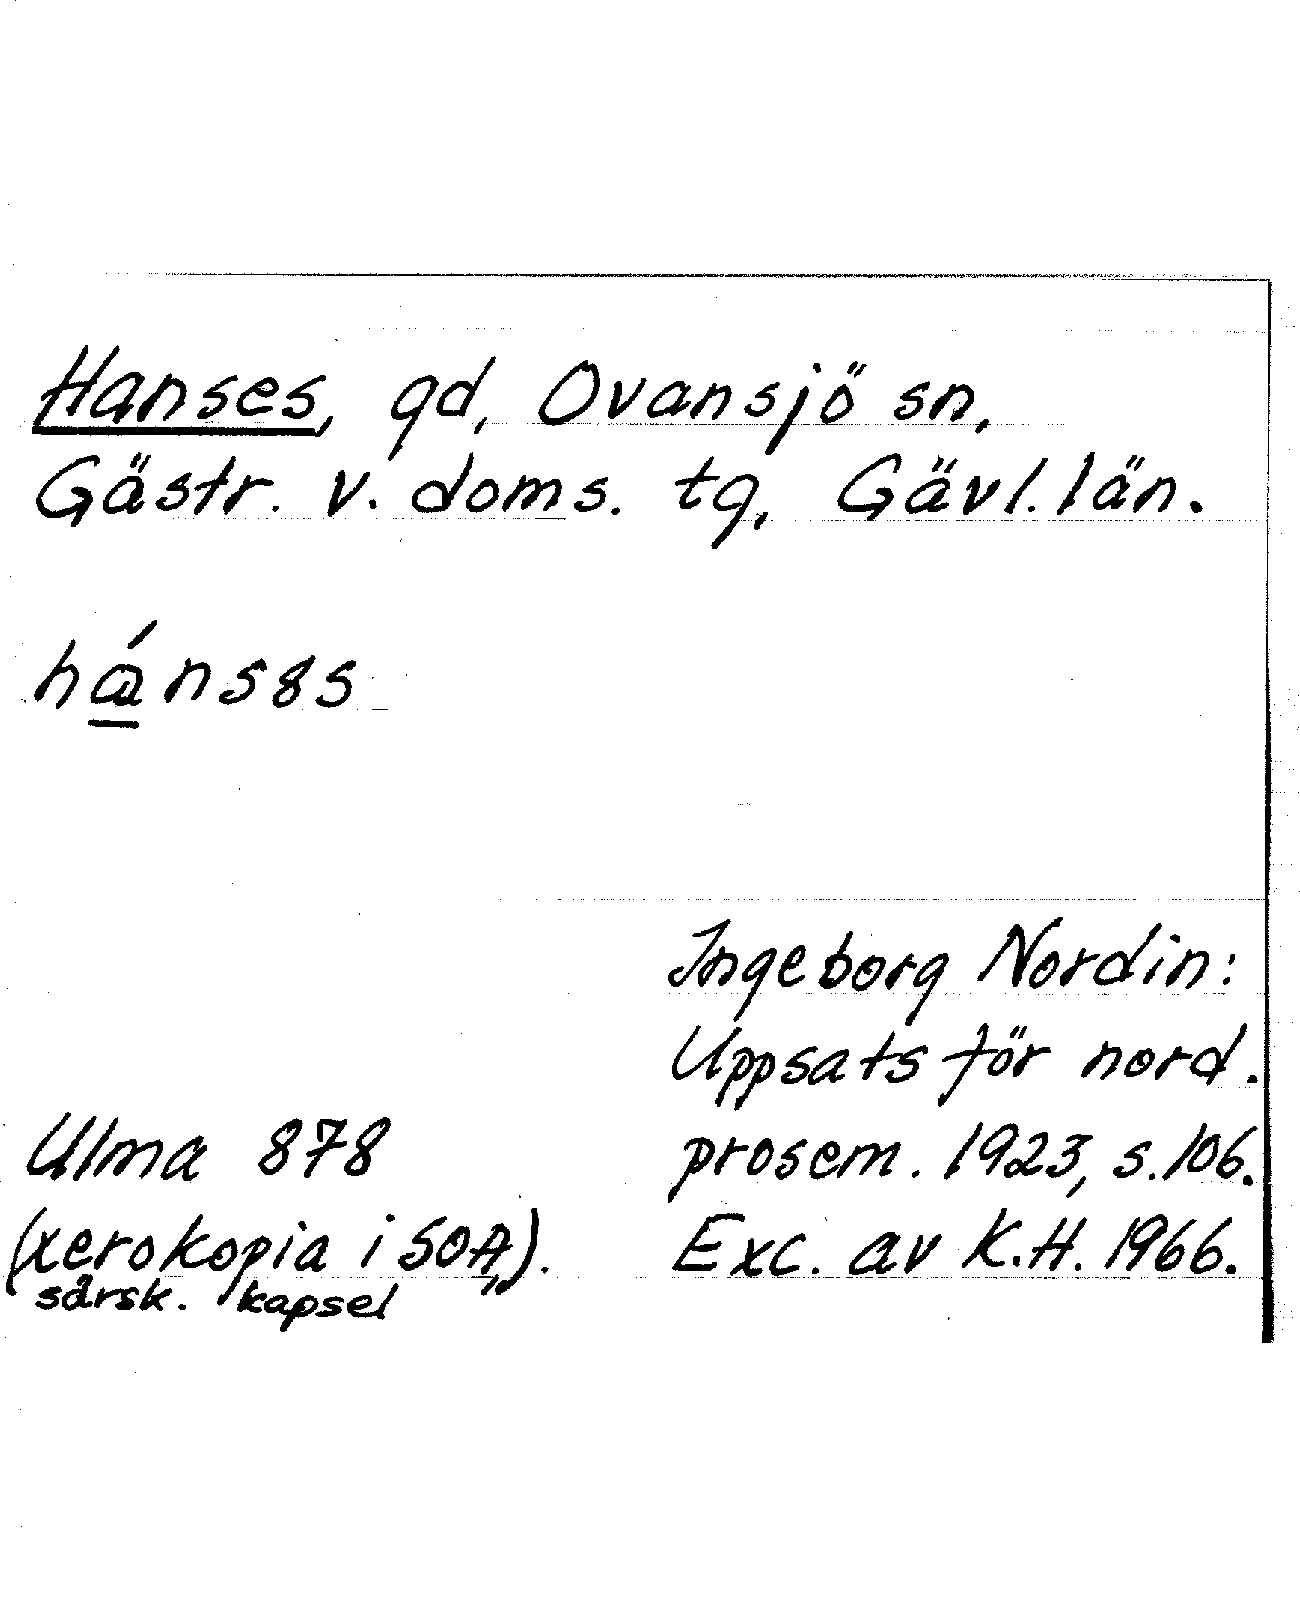 Hanses, gd, Ovansjö sn,
Gästr. v. doms. tg, Gävl. län.
hánsɞs
Ingeborg Nordin:
Uppsats för nord.
prosem. 1923, s. 106.
Exc. av K.H. 1966.
Ulma 878
(xerokopia i SOA,,).
särsk. kapsel